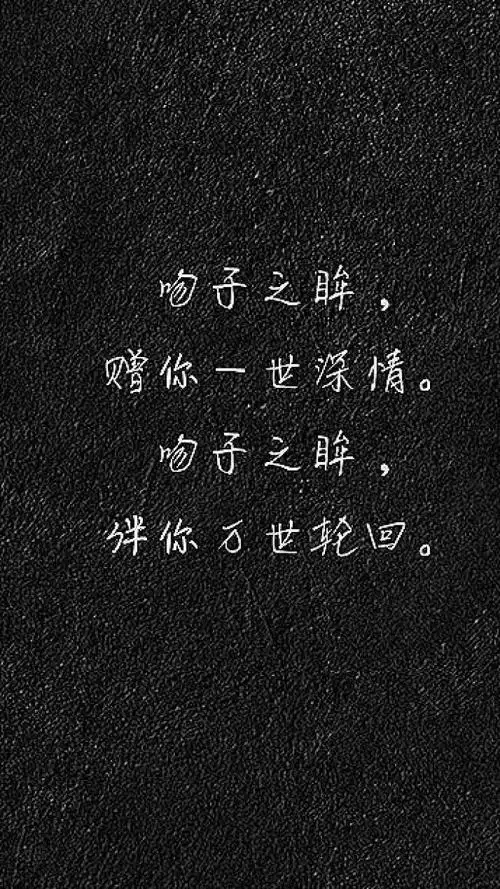 吻子之眸，
赠你一世深情。
吻子之眸，
伴你万世轮回。